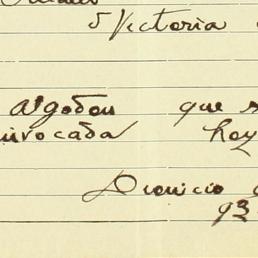 Victoria
Algodon que s
nvocada hoy
Dionicio
93